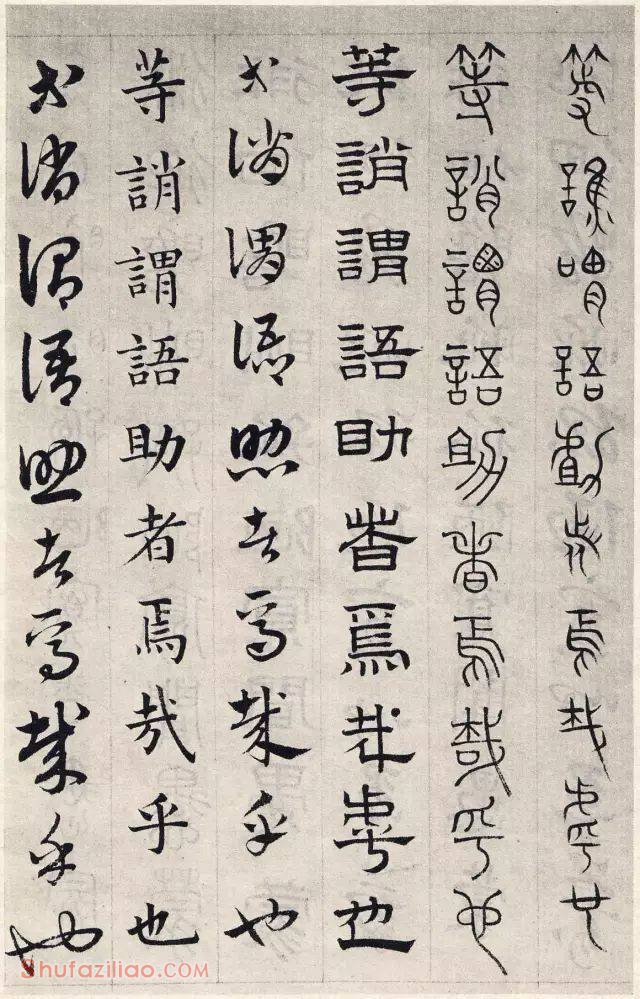 等誚謂語助者焉哉乎也
等誚謂語助者焉哉乎也
等誚謂語助者焉哉乎也
等誚謂語助者焉哉乎也
等誚謂語助者焉哉乎也
等誚謂語助者焉哉乎也
Shufaziliao.com